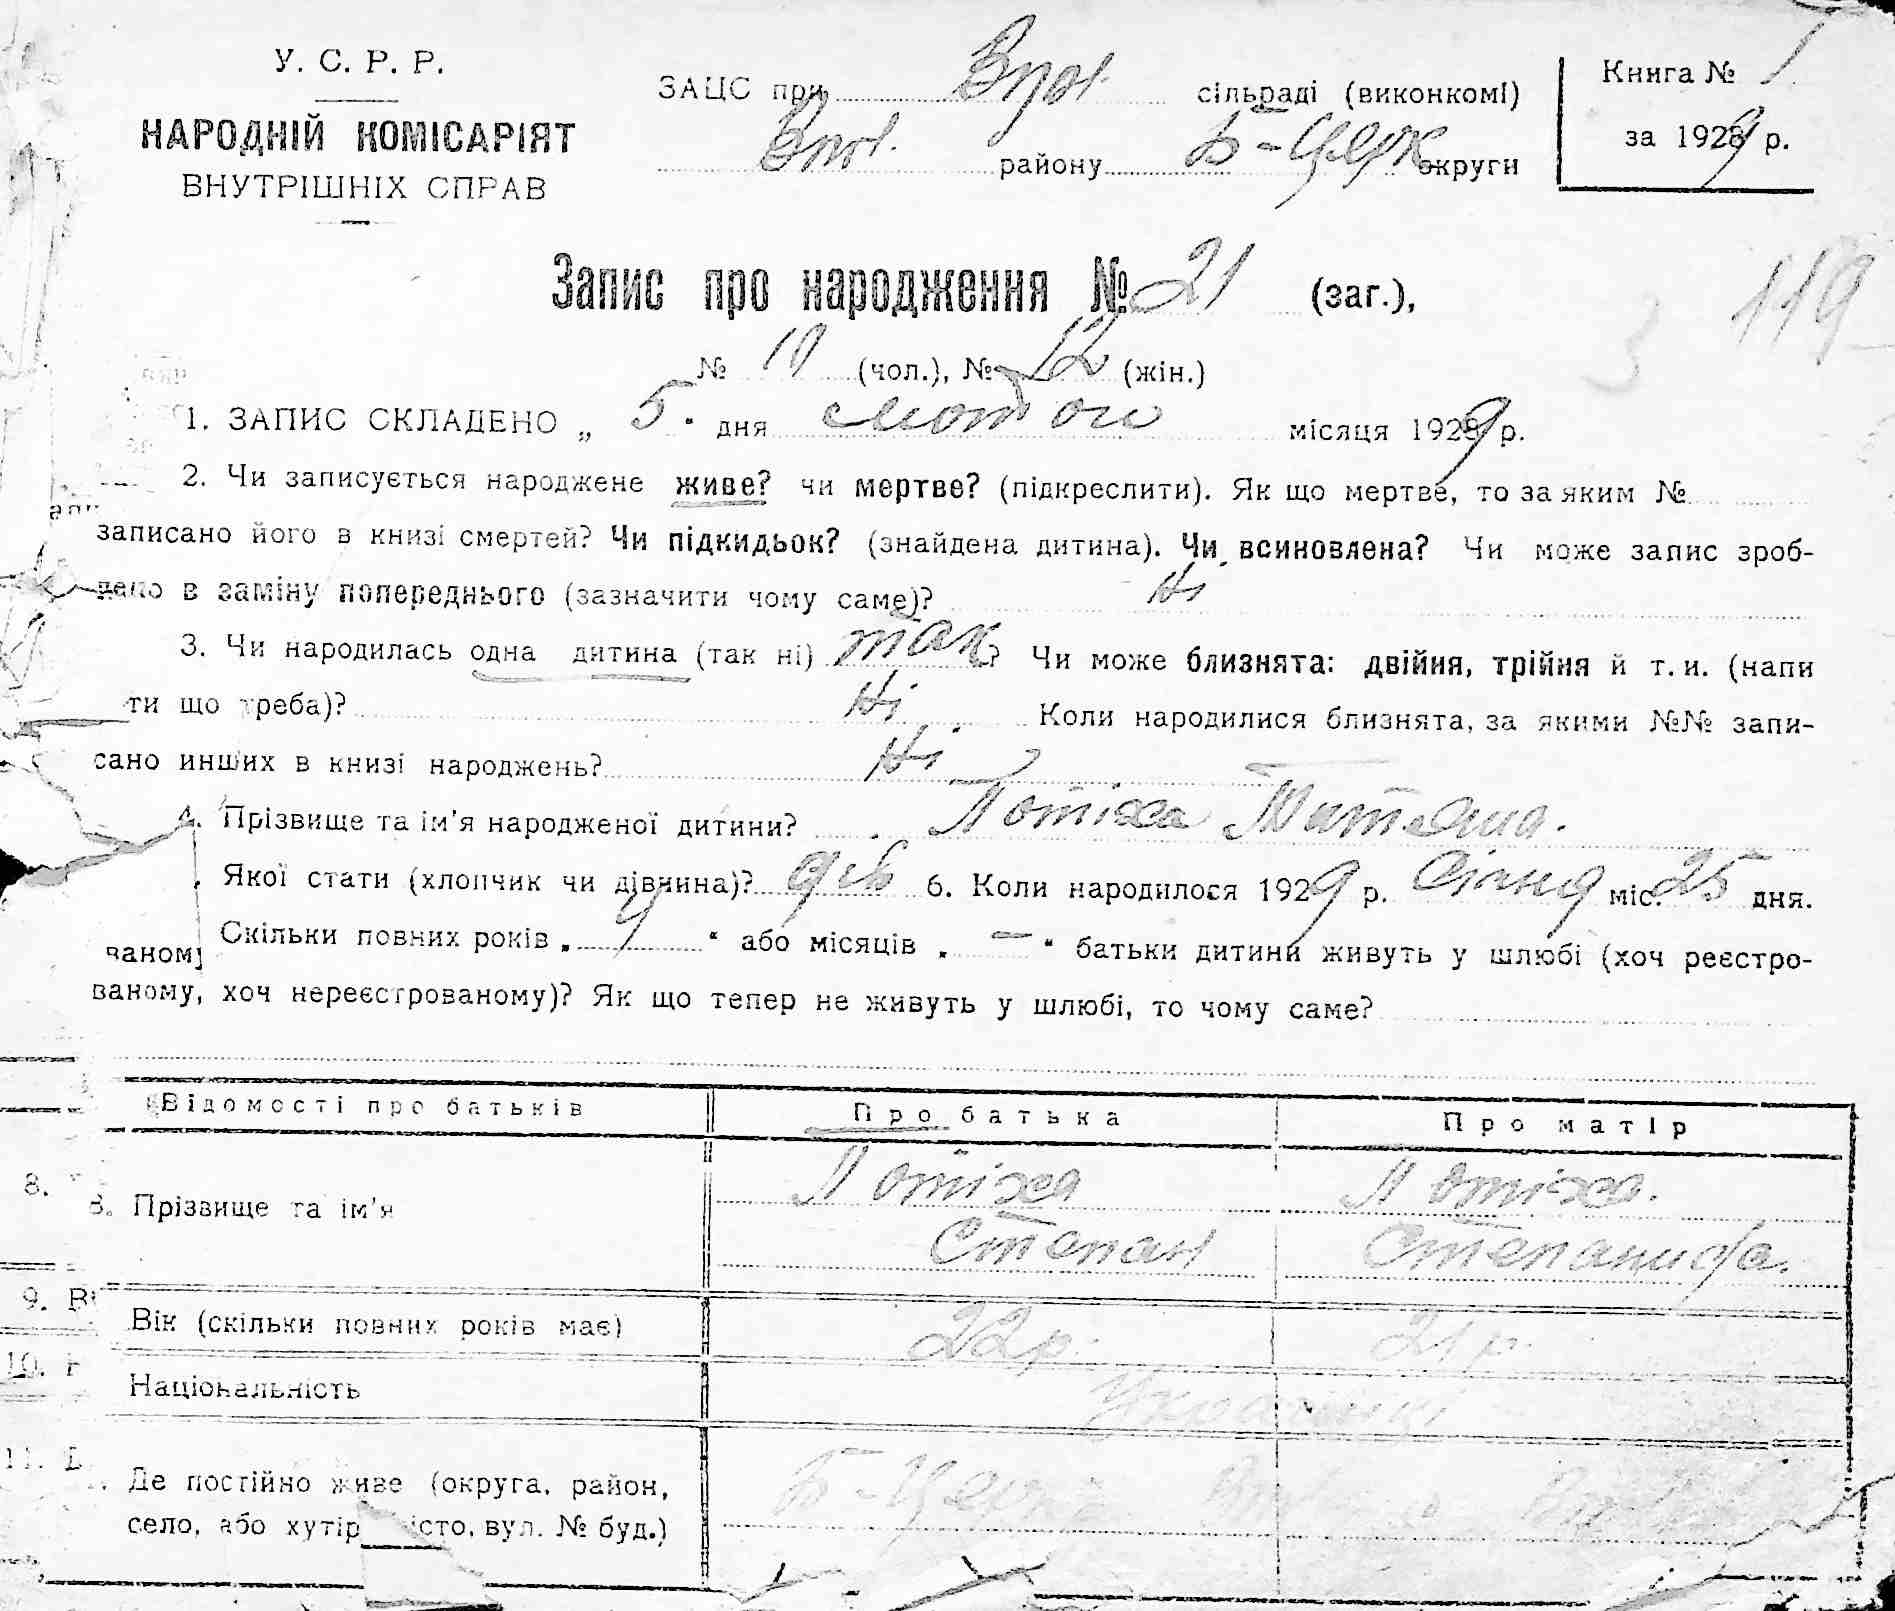 У. С. Р. Р.
НАРОДНІЙ КОМІСАРІЯТ
ВНУТРІШНІХ СПРАВ
ЗАЦС при сільраді (виконкомі)
району Б-Церк округи
Книга № 1
за 1929 р.
Запис про народження № 21 (заг.),
119
3
№ (чол.), № 12 (жін.)
1. ЗАПИС СКЛАДЕНО „ 5 " дня лютого місяця 1929 р.
2. Чи записується народжене живе? чи мертве? (підкреслити). Як що мертве, то за яким №
записано його в книзі смертей? Чи підкидьок? (знайдена дитина). Чи всиновлена? Чи може запис зроб-
лено в заміну попереднього (зазначити чому саме)? Ні
3. Чи народилась одна дитина (так ні) так? Чи може близнята: двійня, трійня й т. и. (напи
ти що треба)? Ні Коли народилися близнята, за якими №№ запи-
сано инших в книзі народжень? Ні
4. Прізвище та ім'я народженої дитини? Потіха Татяна.
Якої стати (хлопчик чи дівчина)? дів 6. Коли народилося 1929 р. Січня міс. 25 дня.
Скільки повних років „ 4 " або місяців „ — " батьки дитини живуть у шлюбі (хоч реєстро-
ваному
ваному, хоч нереєстрованому)? Як що тепер не живуть у шлюбі, то чому саме?
Відомості про батьків Про батька Про матір
8. 8. Прізвище та ім'я Потіха Потіха.
Степан Степанида.
9. Ві Вік (скільки повних років має) 22 р. 21 р.
10. Національність Українці
11. Де постійно живе (округа, район, Б-Церк
село, або хутір місто, вул. № буд.)